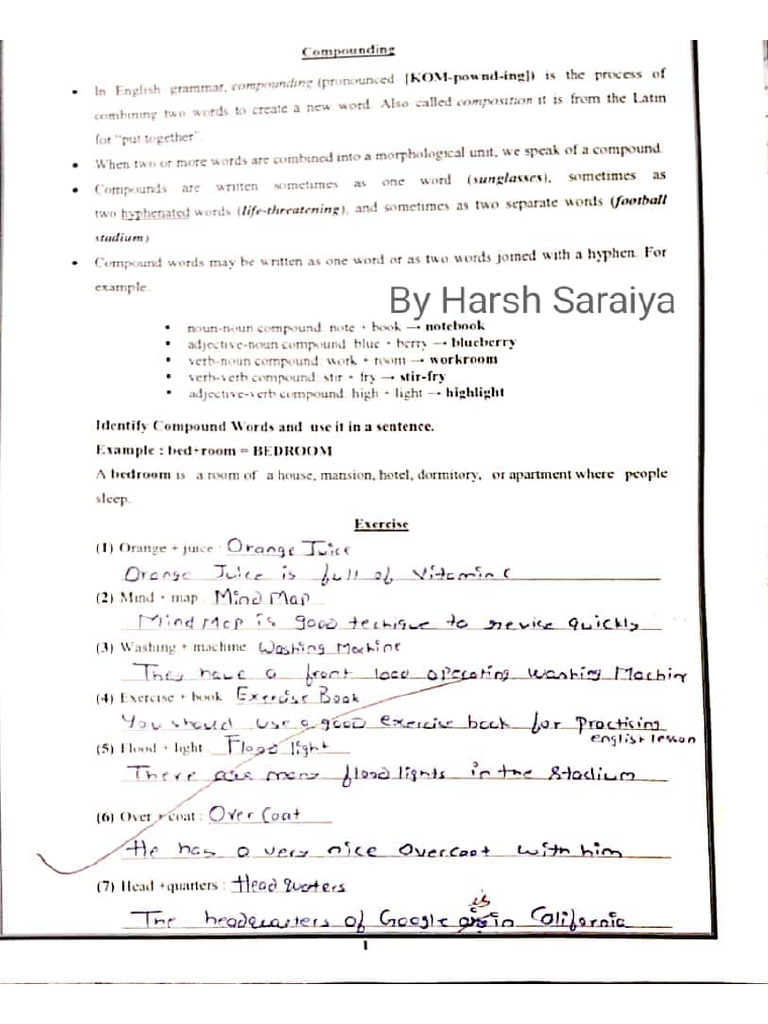 Compounding
• In English grammar, compounding (pronounced [KOM-pownd-ing]) is the process of
combining two words to create a new word. Also called composition it is from the Latin
for "put together".
• When two or more words are combined into a morphological unit, we speak of a compound.
• Compounds are written sometimes as one word (sunglasses), sometimes as
two hyphenated words (life-threatening), and sometimes as two separate words (football
stadium)
• Compound words may be written as one word or as two words joined with a hyphen. For
example:
By Harsh Saraiya
• noun-noun compound: note + book → notebook
• adjective-noun compound: blue + berry → blueberry
• verb-noun compound: work + room → workroom
• verb-verb compound: stir + fry → stir-fry
• adjective-verb compound: high + light → highlight
Identify Compound Words and use it in a sentence.
Example : bed+room = BEDROOM
A bedroom is a room of a house, mansion, hotel, dormitory, or apartment where people
sleep.
Exercise
(1) Orange + juice : Orange Juice
Orange Juice is full of Vitamin C
(2) Mind + map : Mind Map
Mind Map is good technique to revise quickly
(3) Washing + machine : Washing Machine
They have a front load operating Washing Machin
(4) Exercise + book : Exercise Book
You should use a good exercise book for Practising
english lesson
(5) Flood + light : Flood light
There are many flood lights in the Stadium
(6) Over + coat : Over Coat
He has a very nice overcoat with him
(7) Head +quarters : Head quarters
is
The headquarters of Google in California
1